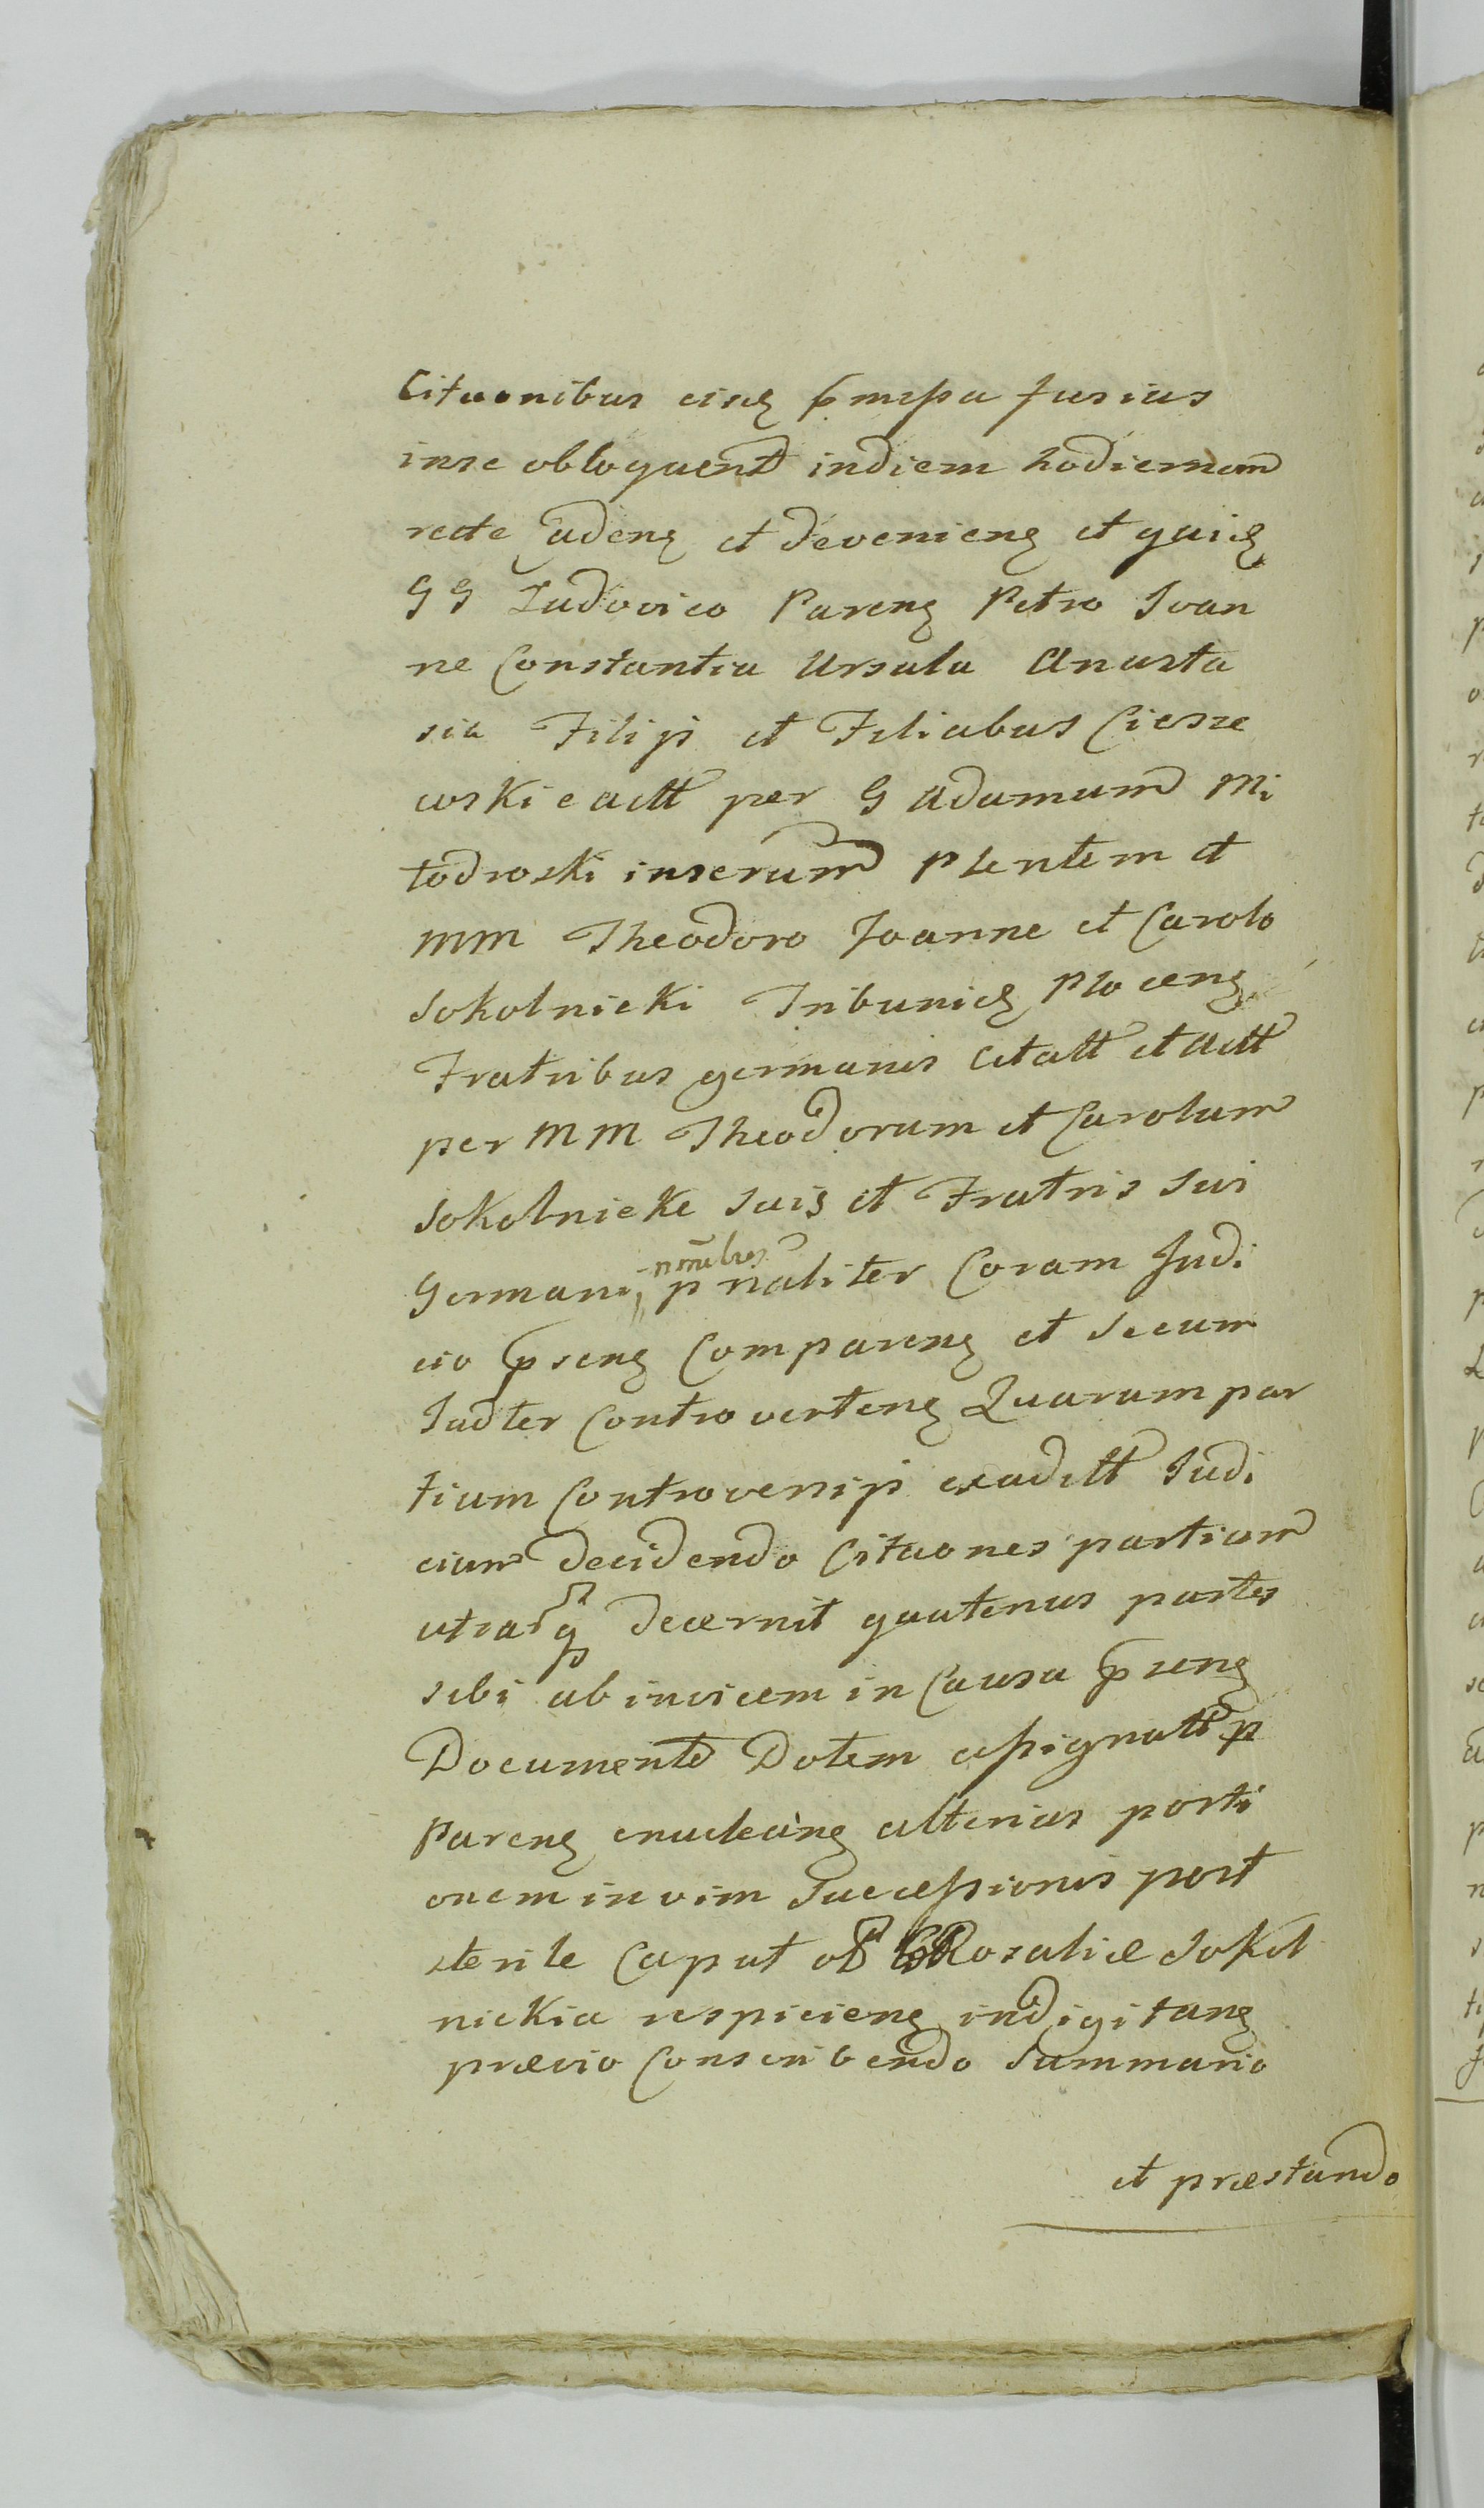 Citaonibus eisq pmissa fusius
in se obloquent in diem hodiernam
recte cadenq et devenienq et quidq
GG Ludovico Parenq Petro Joan
ne Constantia Ursula Anasta
sia Filijs et Filiabus Ciesze
wskie actt per G Adamum Mi
todroski inserum Plentem et
MM Theodoro Joanne et Carolo
Sokolnicki Tribunidq Plocenq
Fratribus germanis Citatt et Actt
per MM Theodorum et Carolum
Sokolnicke suis et Fratris sui
Germani nnibus pnaliter Coram Judi
cio psenq Comparenq et secum
Judter Controvertenq Quarum par
tium Controversijs exaditt Judi
cium decidendo Citaones partium
utrarq decernit quatenus partes
sibi ab invicem in Causa psenq
Document Dotem assignatt p
Parenq enucleanq ulterius porti
onem in vim Successionis post
sterile Caput ol Rosaliæ Sokol
nickia respicienq indigitanq
prævio Conscribendo Summario
et præstando